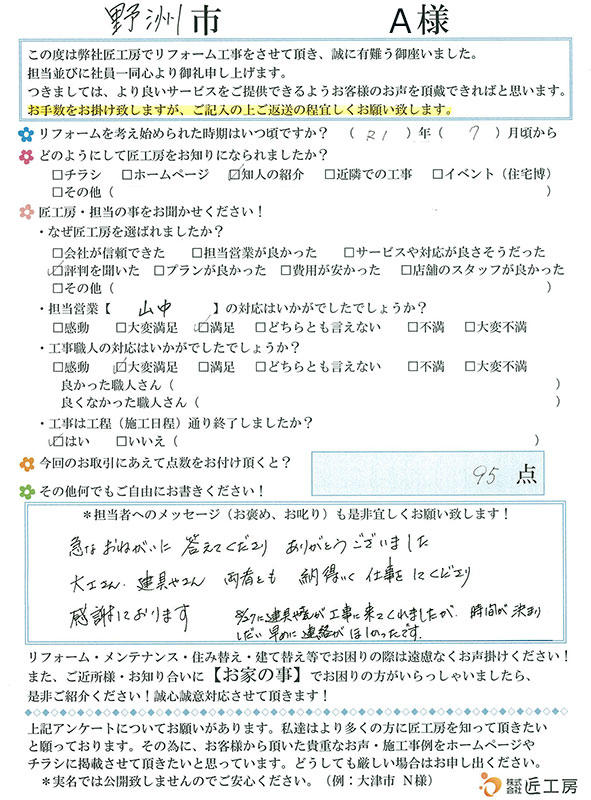 野洲市 A様
この度は弊社匠工房でリフォーム工事をさせて頂き、誠に有難う御座いました。
担当並びに社員一同心より御礼申し上げます。
つきましては、より良いサービスをご提供できるようお客様のお声を頂戴できればと思います。
お手数をお掛け致しますが、ご記入の上ご返送の程宜しくお願い致します。
リフォームを考え始められた時期はいつ頃ですか？ （ R1 ）年（ 7 ）月頃から
どのようにして匠工房をお知りになられましたか？
□チラシ □ホームページ ☑知人の紹介 □近隣での工事 □イベント（住宅博）
□その他（ ）
匠工房・担当の事をお聞かせください！
・なぜ匠工房を選ばれましたか？
□会社が信頼できた □担当営業が良かった □サービスや対応が良さそうだった
☑評判を聞いた □プランが良かった □費用が安かった □店舗のスタッフが良かった
□その他（ ）
・担当営業【 山中 】の対応はいかがでしたでしょうか？
□感動 □大変満足 ☑満足 □どちらとも言えない □不満 □大変不満
・工事職人の対応はいかがでしたでしょうか？
□感動 ☑大変満足 □満足 □どちらとも言えない □不満 □大変不満
良かった職人さん（ ）
良くなかった職人さん（ ）
・工事は工程（施工日程）通り終了しましたか？
☑はい □いいえ（ ）
今回のお取引にあえて点数をお付け頂くと？ 95 点
その他何でもご自由にお書きください！
＊担当者へのメッセージ（お褒め、お叱り）も是非宜しくお願い致します！
急なおねがいに 答えてくださり ありがとうございました
大工さん、建具やさん 両者とも 納得いく 仕事をしてくださり
感謝しております
5/27に建具やさんが工事に来てくれましたが、時間が決まり
しだい 早めに 連絡が ほしかったです。
リフォーム・メンテナンス・住み替え・建て替え等でお困りの際は遠慮なくお声掛けください！
また、ご近所様・お知り合いに【お家の事】でお困りの方がいらっしゃいましたら、
是非ご紹介ください！誠心誠意対応させて頂きます！
上記アンケートについてお願いがあります。私達はより多くの方に匠工房を知って頂きたい
と願っております。その為に、お客様から頂いた貴重なお声・施工事例をホームページや
チラシに掲載させて頂きたいと思っています。どうしても厳しい場合はお申し出ください。
＊実名では公開致しませんのでご安心ください。（例：大津市 N様）
株式会社 匠工房